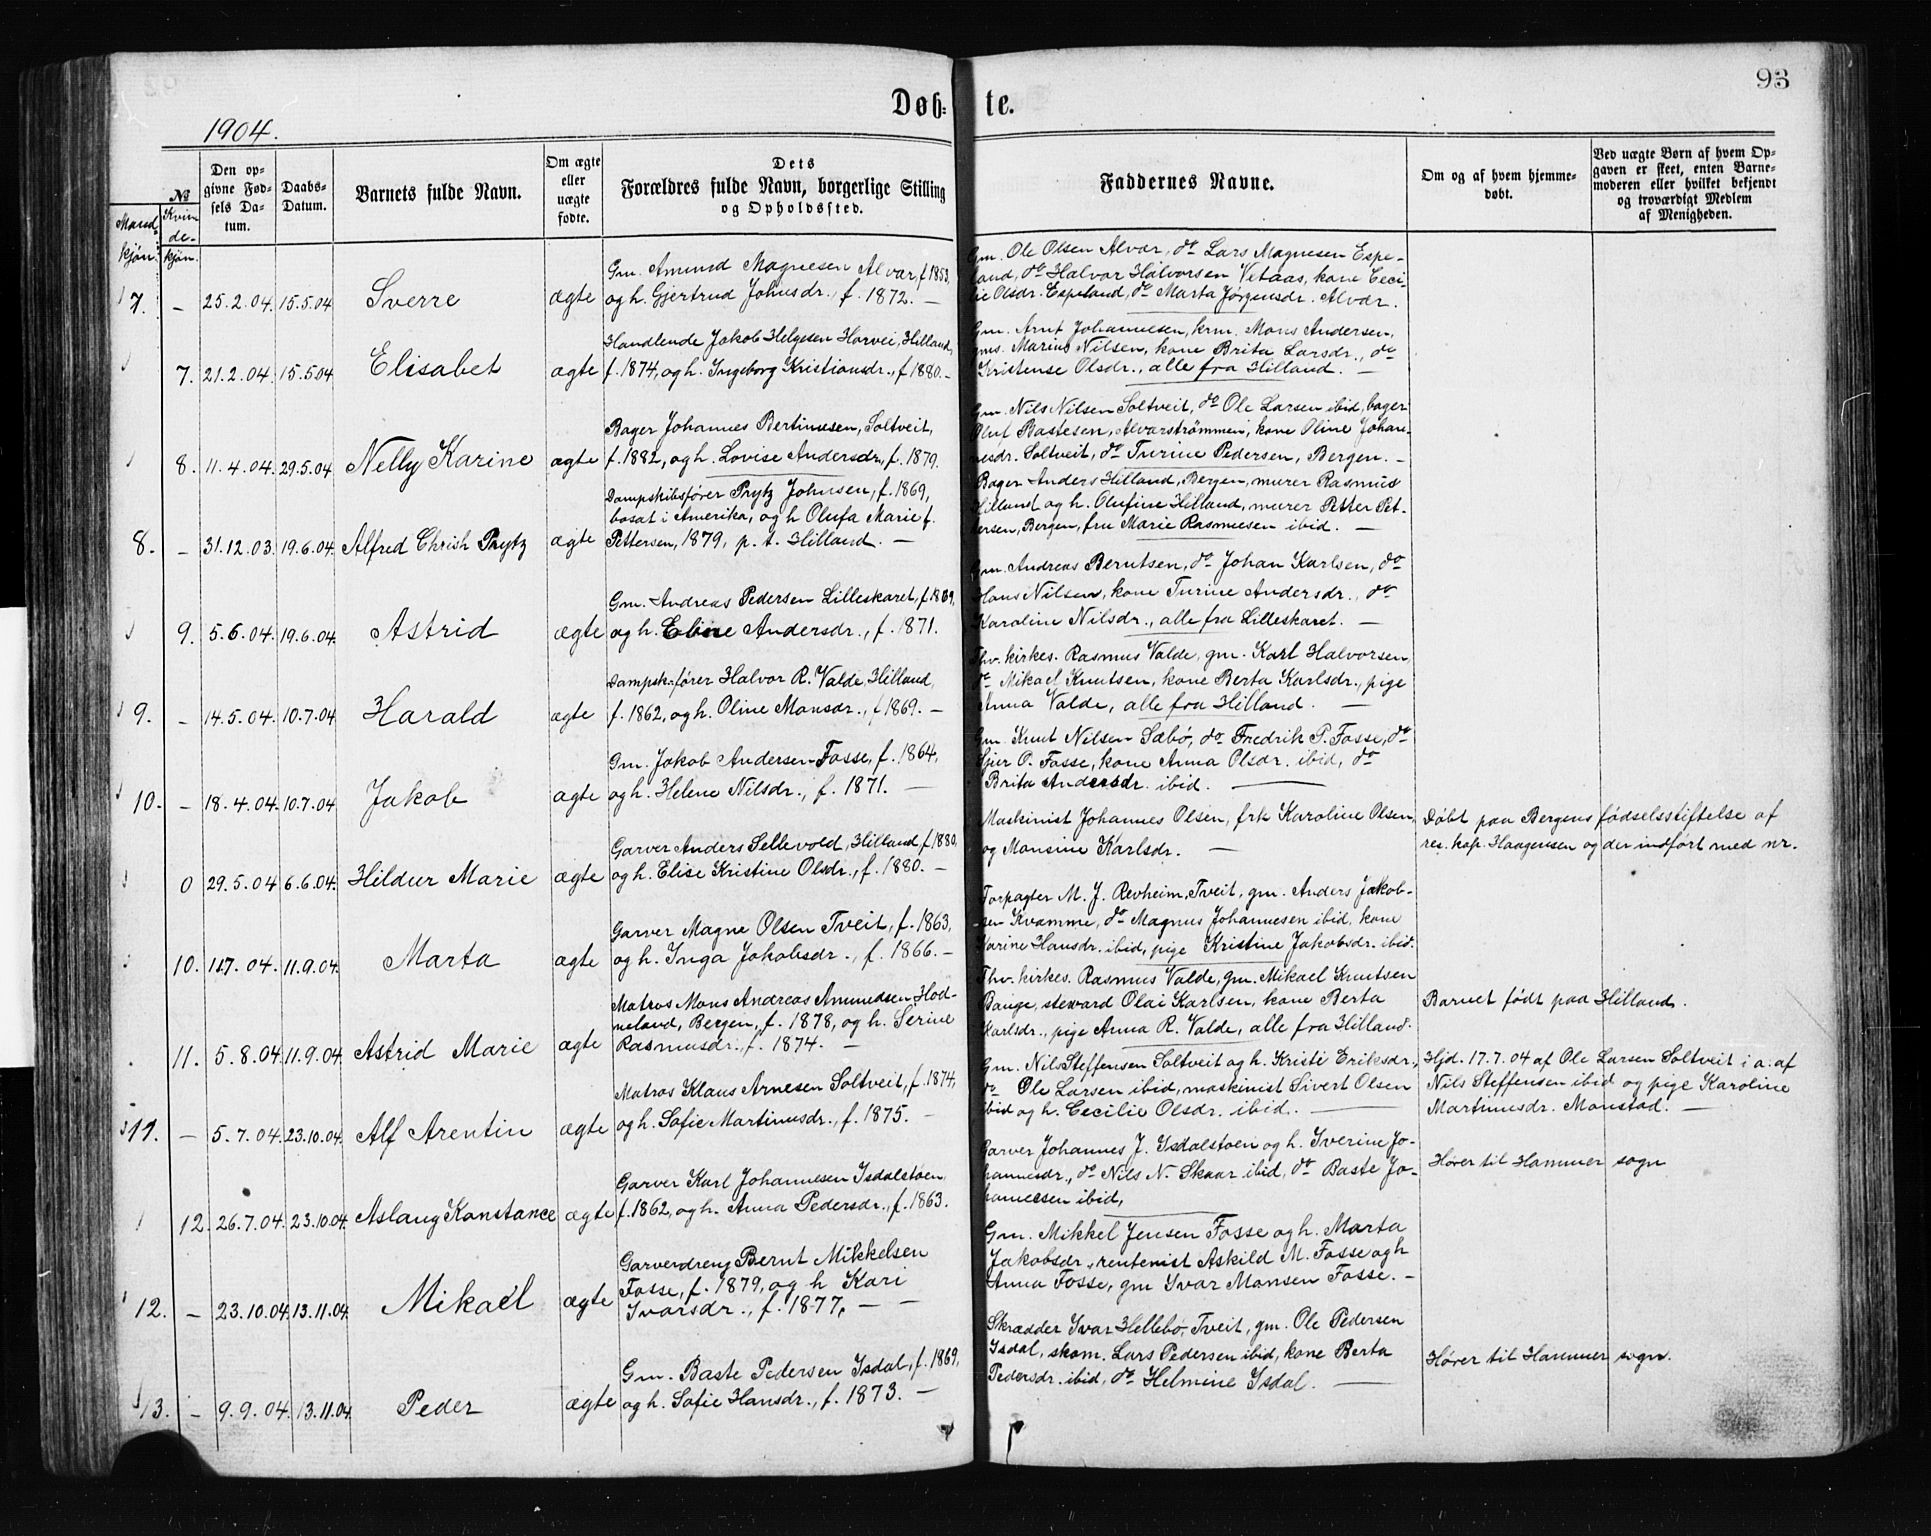 93
Døb=te.
1904.
№
Mandkjøn.
Kvindekjøn.
Den opgivne Fødsels Datum.
Daabs-Datum.
Barnets fulde Navn.
Om ægte eller uægte fødte.
Dets Forældres fulde Navn, borgerlige Stilling og Opholdssted.
Faddernes Navne.
Om og af hvem hjemmedøbt.
Ved uægte Børn af hvem Opgaven er skeet, enten Barnemoderen eller hvilket bekjendt og troværdigt Medlem af Menigheden.
7. - 25.2.04. 15.5.04 Sverre ægte
Gm. Amund Magnesen Alvar, f. 1853,
og h. Gjertrud Johnsdr., f. 1872. -
Gm. Ole Olsen Alvær, do Lars Magnesen Espe-
land, do Halvor Halvorsen Vetaas, kone Ceci-
lie Olsdr. Espeland, do Marta Jørgensdr. Alvær.
7. 21.2.04. 15.5.04 Elisabet ægte
Handlende Jakob Helgesen Horvei, Hilland,
f. 1874, og h. Ingeborg Kristiansdr., f 1880. -
Gm. Arnt Johannesen, krm. Mons Andersen,
gms. Marius Nilsen, kone Brita Larsdr., do
Kristense Olsdr., alle fra Hilland. -
8. 11.4.04. 29.5.04 Nelly Karine ægte
Bager Johannes Bertinusen, Soltveit,
f. 1882, og h. Lovise Andersdr., f. 1879.
Gm. Nils Nilsen Soltveit, do Ole Larsen ibid, bager
Oluf Bastesen, Alvarstrømmen, kone Oline Johan-
nesdr. Soltveit, do Turine Pedersen, Bergen. -
8. - 31.12.03. 19.6.04. Alfred Chrish Prytz ægte
Dampskibsfører Prytz Johnsen, f. 1869,
bosat i Amerika, og h Olufa Marie f.
Pettersen, 1879, p. t. Hilland. -
Bager Anders Hilland, Bergen, murer Rasmus
Hilland og h. Olufine Hilland, murer Petter Pet-
tersen, Bergen, fru Marie Rasmussen ibid. -
9. 5.6.04. 19.6.04. Astrid ægte
Gm. Andreas Pedersen Lilleskaret, f. 1869,
og h. Eline Andersdr., f. 1871.
Gm. Andreas Berntsen, do Johan Karlsen, do
Hans Nilsen, kone Turine Andersdr., do
Karoline Nilsdr., alle fra Lilleskaret. -
9. - 14.5.04. 10.7.04. Harald ægte
Dampsk.fører Halvor R. Valde, Hilland,
f. 1862, og h. Oline Monsdr., f 1869. -
Thv. kirkes. Rasmus Valde, gm. Karl Halvorsen,
do Mikael Knutsen, kone Berta Karlsdr., pige
Anna Valde, alle fra Hilland. -
10. - 18.4.04. 10.7.04 Jakob ægte
Gm. Jakob Andersen Fosse, f. 1864,
og h. Helene Nilsdr., f. 1871. -
Gm. Knut Nilsen Sæbø, do Fredrik P. Fosse, do
Sjur O. Fosse, kone Anna Olsdr. ibid, do
Brita Andersdr. ibid. -
0 29.5.04 6.6.04. Hildur Marie ægte
Garver Anders Sellevold, Hilland f. 1880,
og h. Elise Kristine Olsdr., f. 1880. -
Maskinist Johannes Olsen, frk Karoline Olsen,
og Monsine Karlsdr. -
Døbt paa Bergens fødselsstiftelse af
res. kap. Haagensen og der indført med nr.
10. 117.04. 11.9.04. Marta ægte
Garver Magne Olsen Tveit, f. 1863,
og h. Inga Jakobsdr., f. 1866. -
Forpagter M. J. Revheim, Tveit, gm. Anders Jakob-
sen Kvamme, do Magnus Johannesen ibid, kone
Karine Hansdr. ibid, pige Kristine Jakobsdr. ibid.
11. 5.8.04. 11.9.04. Astrid Marie ægte
Matros Mons Andreas Amundsen Hod-
neland, Bergen, f. 1878, og h. Serine
Rasmusdr., f. 1874. -
Thv. kirkes. Rasmus Valde, gm. Mikael Knutsen
Bauge, steward Olai Karlsen, kone Berta
Karlsdr., pige Anna R. Valde, alle fra Hilland.
Barnet født paa Hilland.
11. - 5.7.04. 23.10.04. Alf Arentin ægte
Matros Klaus Arnesen Soltveit, f. 1874,
og h. Sofie Martinusdr., f. 1875. -
Gm. Nils Steffensen Soltveit og h. Kristi Eriksdr.,
do Ole Larsen ibid, maskinist Sivert Olsen
ibid og h. Cecilie Olsdr. ibid. -
Hjd. 17.7.04 af Ole Larsen Soltveit i a. af
Nils Steffensen ibid og pige Karoline
Martinusdr. Monstad. -
12. 26.7.04. 23.10.04. Aslaug Konstance ægte
Garver Karl Johannesen Isdalstøen,
f. 1862, og h. Anna Pedersdr., f. 1863.
Garver Johannes J. Isdalstøen og h. Iverine Jo-
hannesdr., do Nils N. Skaar ibid, do Baste Jo-
hannessen ibid,
Hører til Hammer sogn
12. - 23.10.04. 13.11.04. Mikael ægte
Garverdreng Bernt Mikkelsen
Fosse, f. 1879, og h Kari
Ivarsdr., f. 1877, - -
Gm. Mikkel Jensen Fosse og h. Marta
Jakobsdr., rentenist Askild M. Fosse og h
Anna Fosse, gm Ivar Monsen Fosse. -
13. - 9.9.04. 13.11.04. Peder ægte
Gm. Baste Pedersen Isdal, f. 1869,
og h. Sofie Hansdr., f. 1873. -
Skrædder Ivar Hellebø, Tveit, gm. Ole Pedersen
Isdal, skom. Lars Pedersen ibid, kone Berta
Pedersdr. ibid, do Helmine Isdal. -
Hører til Hammer sogn.